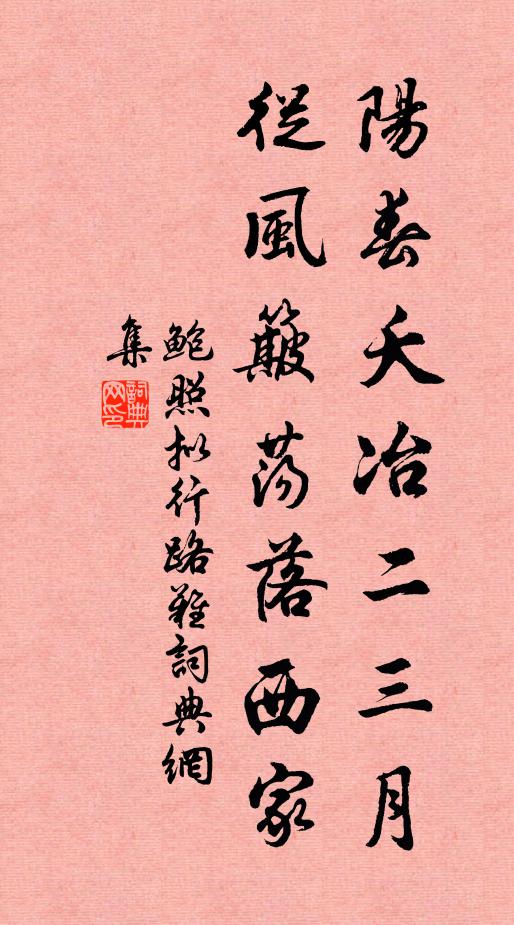 陽春夭冶二三月
從風簸蕩落西家
鮑照拟行路難詞典網
集
詞典網印